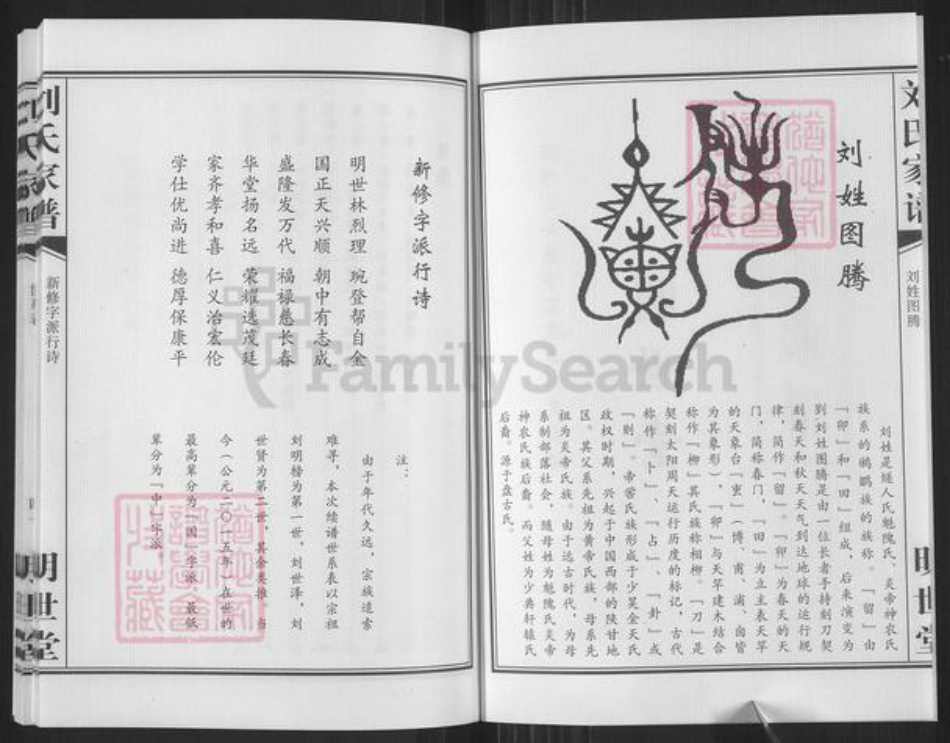 刘氏家谱
刘姓图腾
明世堂
刘姓图腾
刘姓是燧人氏魁隗氏、炎帝神农氏
族系的鹠鹂族的族称。「留」由
「卯」和「田」组成，后来演变为
到刘姓图腾是由一位长者手持刻刀契
刻春天和秋天天气到达地球的运行规
律，简作「留」。「卯」为春天的天
门，简称春门，「田」为立主表天竿
的天象台「
为其象形），「卯」与天竿建木结合
称作「柳」其氏族称相柳。「刀」是
契刻太阳周天运行历度的标记，古代
称作「卜」、「占」、「卦」或
「则」。帝喾氏族形成于少昊金天氏
政权时期，兴起于中国西部的陕甘地
区。其父系先祖为黄帝氏族，母系先
祖为炎帝氏族。由于远古时代，为母
系制部落社会，随母姓为魁隗氏炎帝
神农氏族后裔。而父姓为少典轩辕氏
后裔。源于盘古氏。
新修字派行诗
明世林烈理 琬登帮自金
国正天兴顺 朝中有志成
盛隆发万代 福禄慈长春
华堂扬名远 荣耀逸茂廷
家齐孝和喜 仁义治宏伦
学仕优尚进 德厚保康平
注：
由于年代久远，宗族造索
难寻，本次续谱世系表以宗祖
刘明榜为第一世，刘世泽，刘
世贤为第二世，其余类推。当
今（公元二〇一五年）在世的
最高辈分为「国」字派，最低
辈分为「中」字派。
刘氏家谱
新修字派行诗
明世堂
FamilySearch